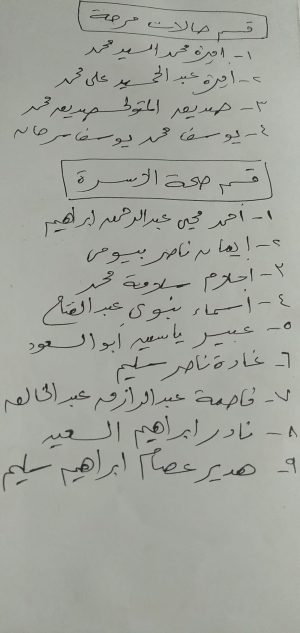 قسم حالات حرجة
١- اميرة محمد السيد محمد
٢- اميرة عبد الحميد على محمد
٣- صديقه المتولى صديقه محمد
٤- يوسف محمد يوسف سرحان
قسم صحة الاسرة
١- احمد محى عبدالرحمن ابراهيم
٢- إيمان ناصر بيومى
٣- احلام سلامة محمد
٤- أسماء نبوى عبد الفتاح
٥- عبير ياسين أبو السعود
٦- غادة ناصر سليم
٧- فاطمة عبد الرازق عبد الخالق
٨- نادر ابراهيم السعيد
٩- هدير عصام ابراهيم سليم